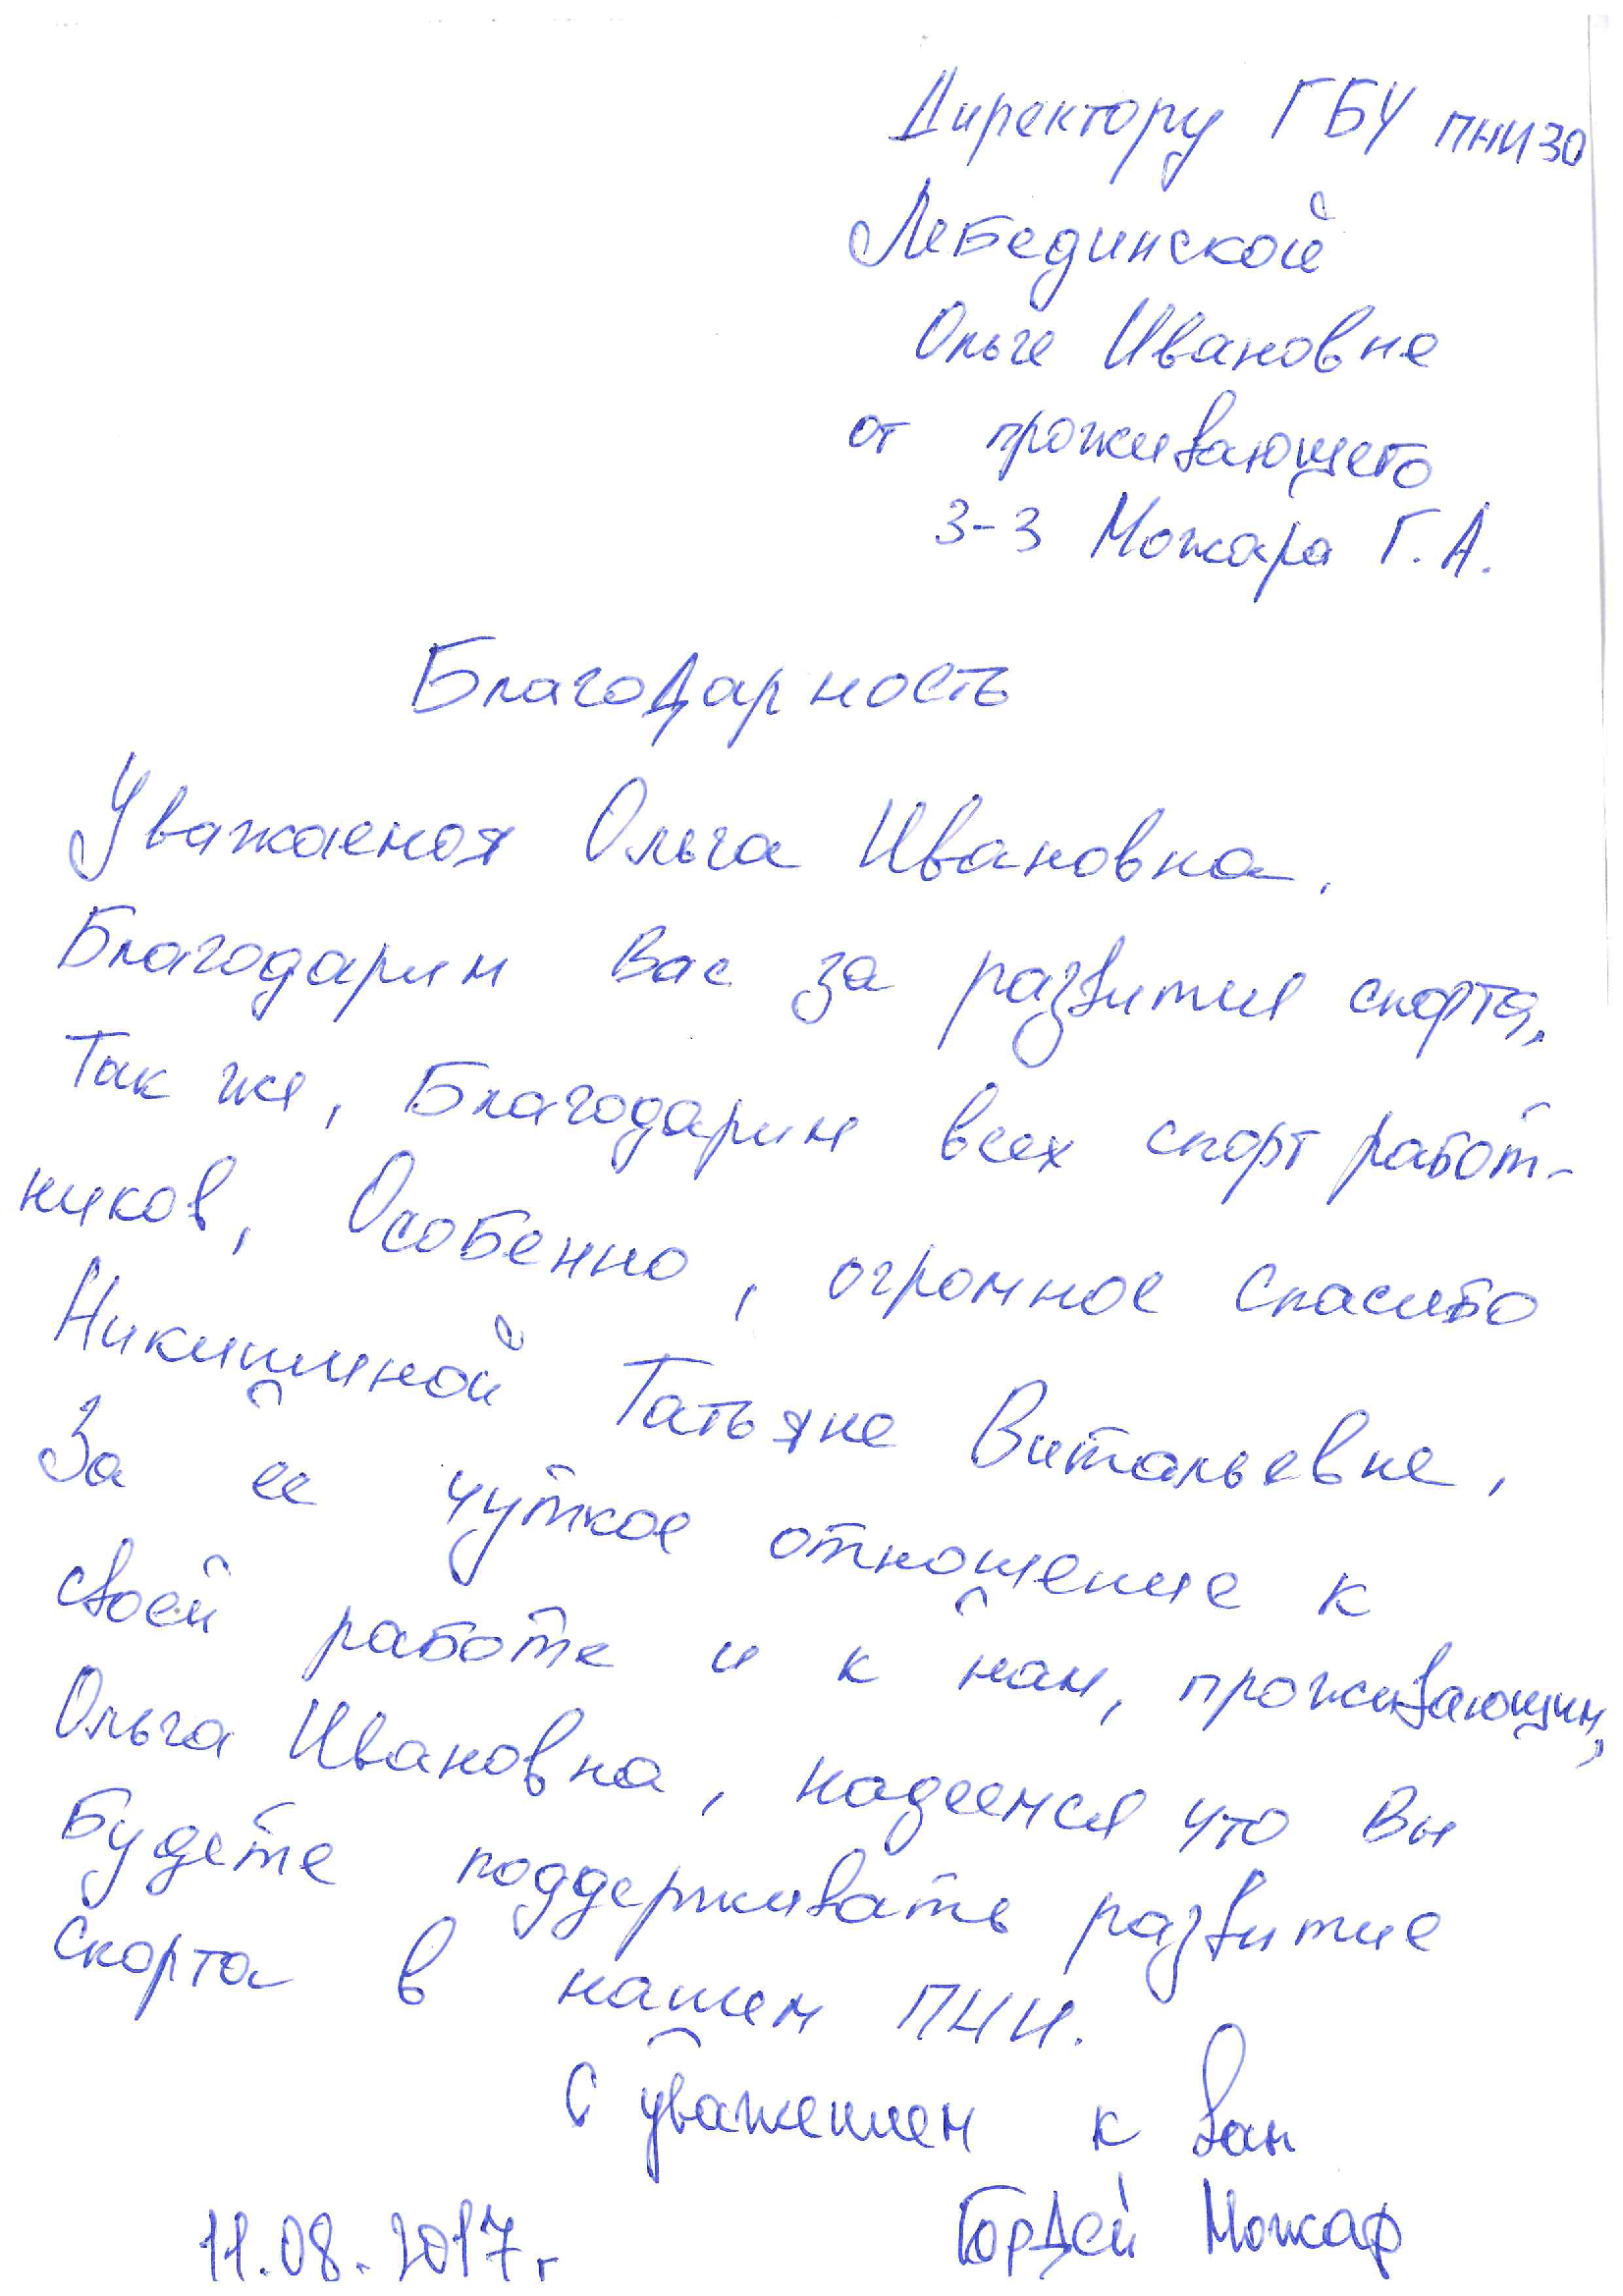 Директору ГБУ ПНИ30
Лебединской
Ольге Ивановне
от проживающего
3-3 Можара Г. А.
Благодарность
Уважаемая Ольга Ивановна.
Благодарим Вас за развития спорта.
Так же, Благодарим всех спорт работ-
ников, Особенно, огромное спасибо
Никишиной Татьяне Витальевне,
За ее чуткое отношение к
своей работе и к нам, проживающим,
Ольга Ивановна, надеемся что Вы
Будете поддерживать развитие
спорта в нашем ПНИ.
С уважением к вам
11.08.2017г Гордей Можар